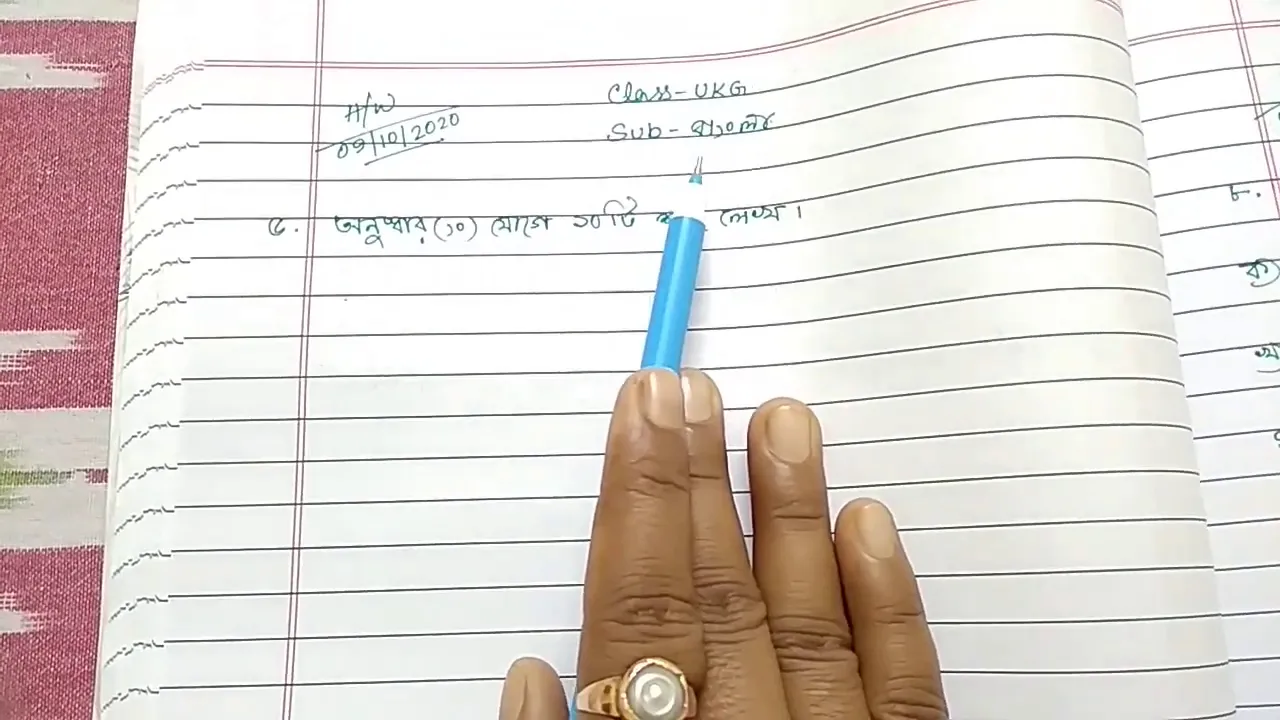 H/W
09/10/2020
Class-UKG
Sub-বাংলা
৫. অনুস্বার(ং) যোগে ১০টি লেখ।
৮.